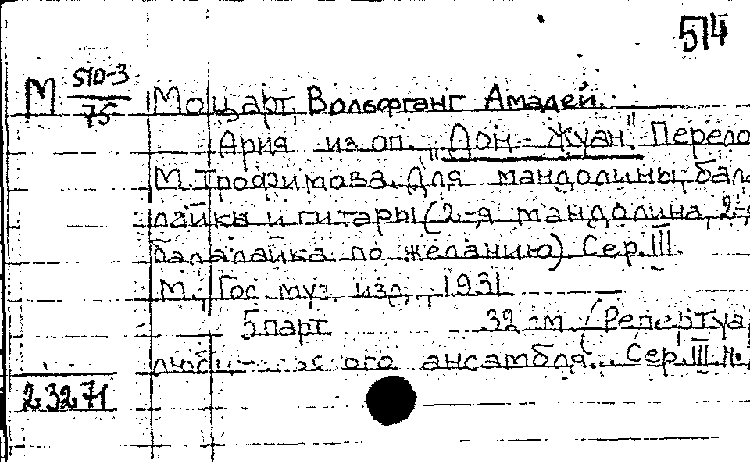 514
М 510-3/75 Моцарт, Вольфганг Амадей.
Ария из оп. "Дон-Жуан". Перело
М. Трофимова. Для мандолины, бала
лайки и гитары (2-я мандолина, 2-я
балалайка по желанию). Сер. III.
М., Гос. муз. изд., 1931
5 парт. 32 см. (Репертуа
ансамбля. Сер. III
23271